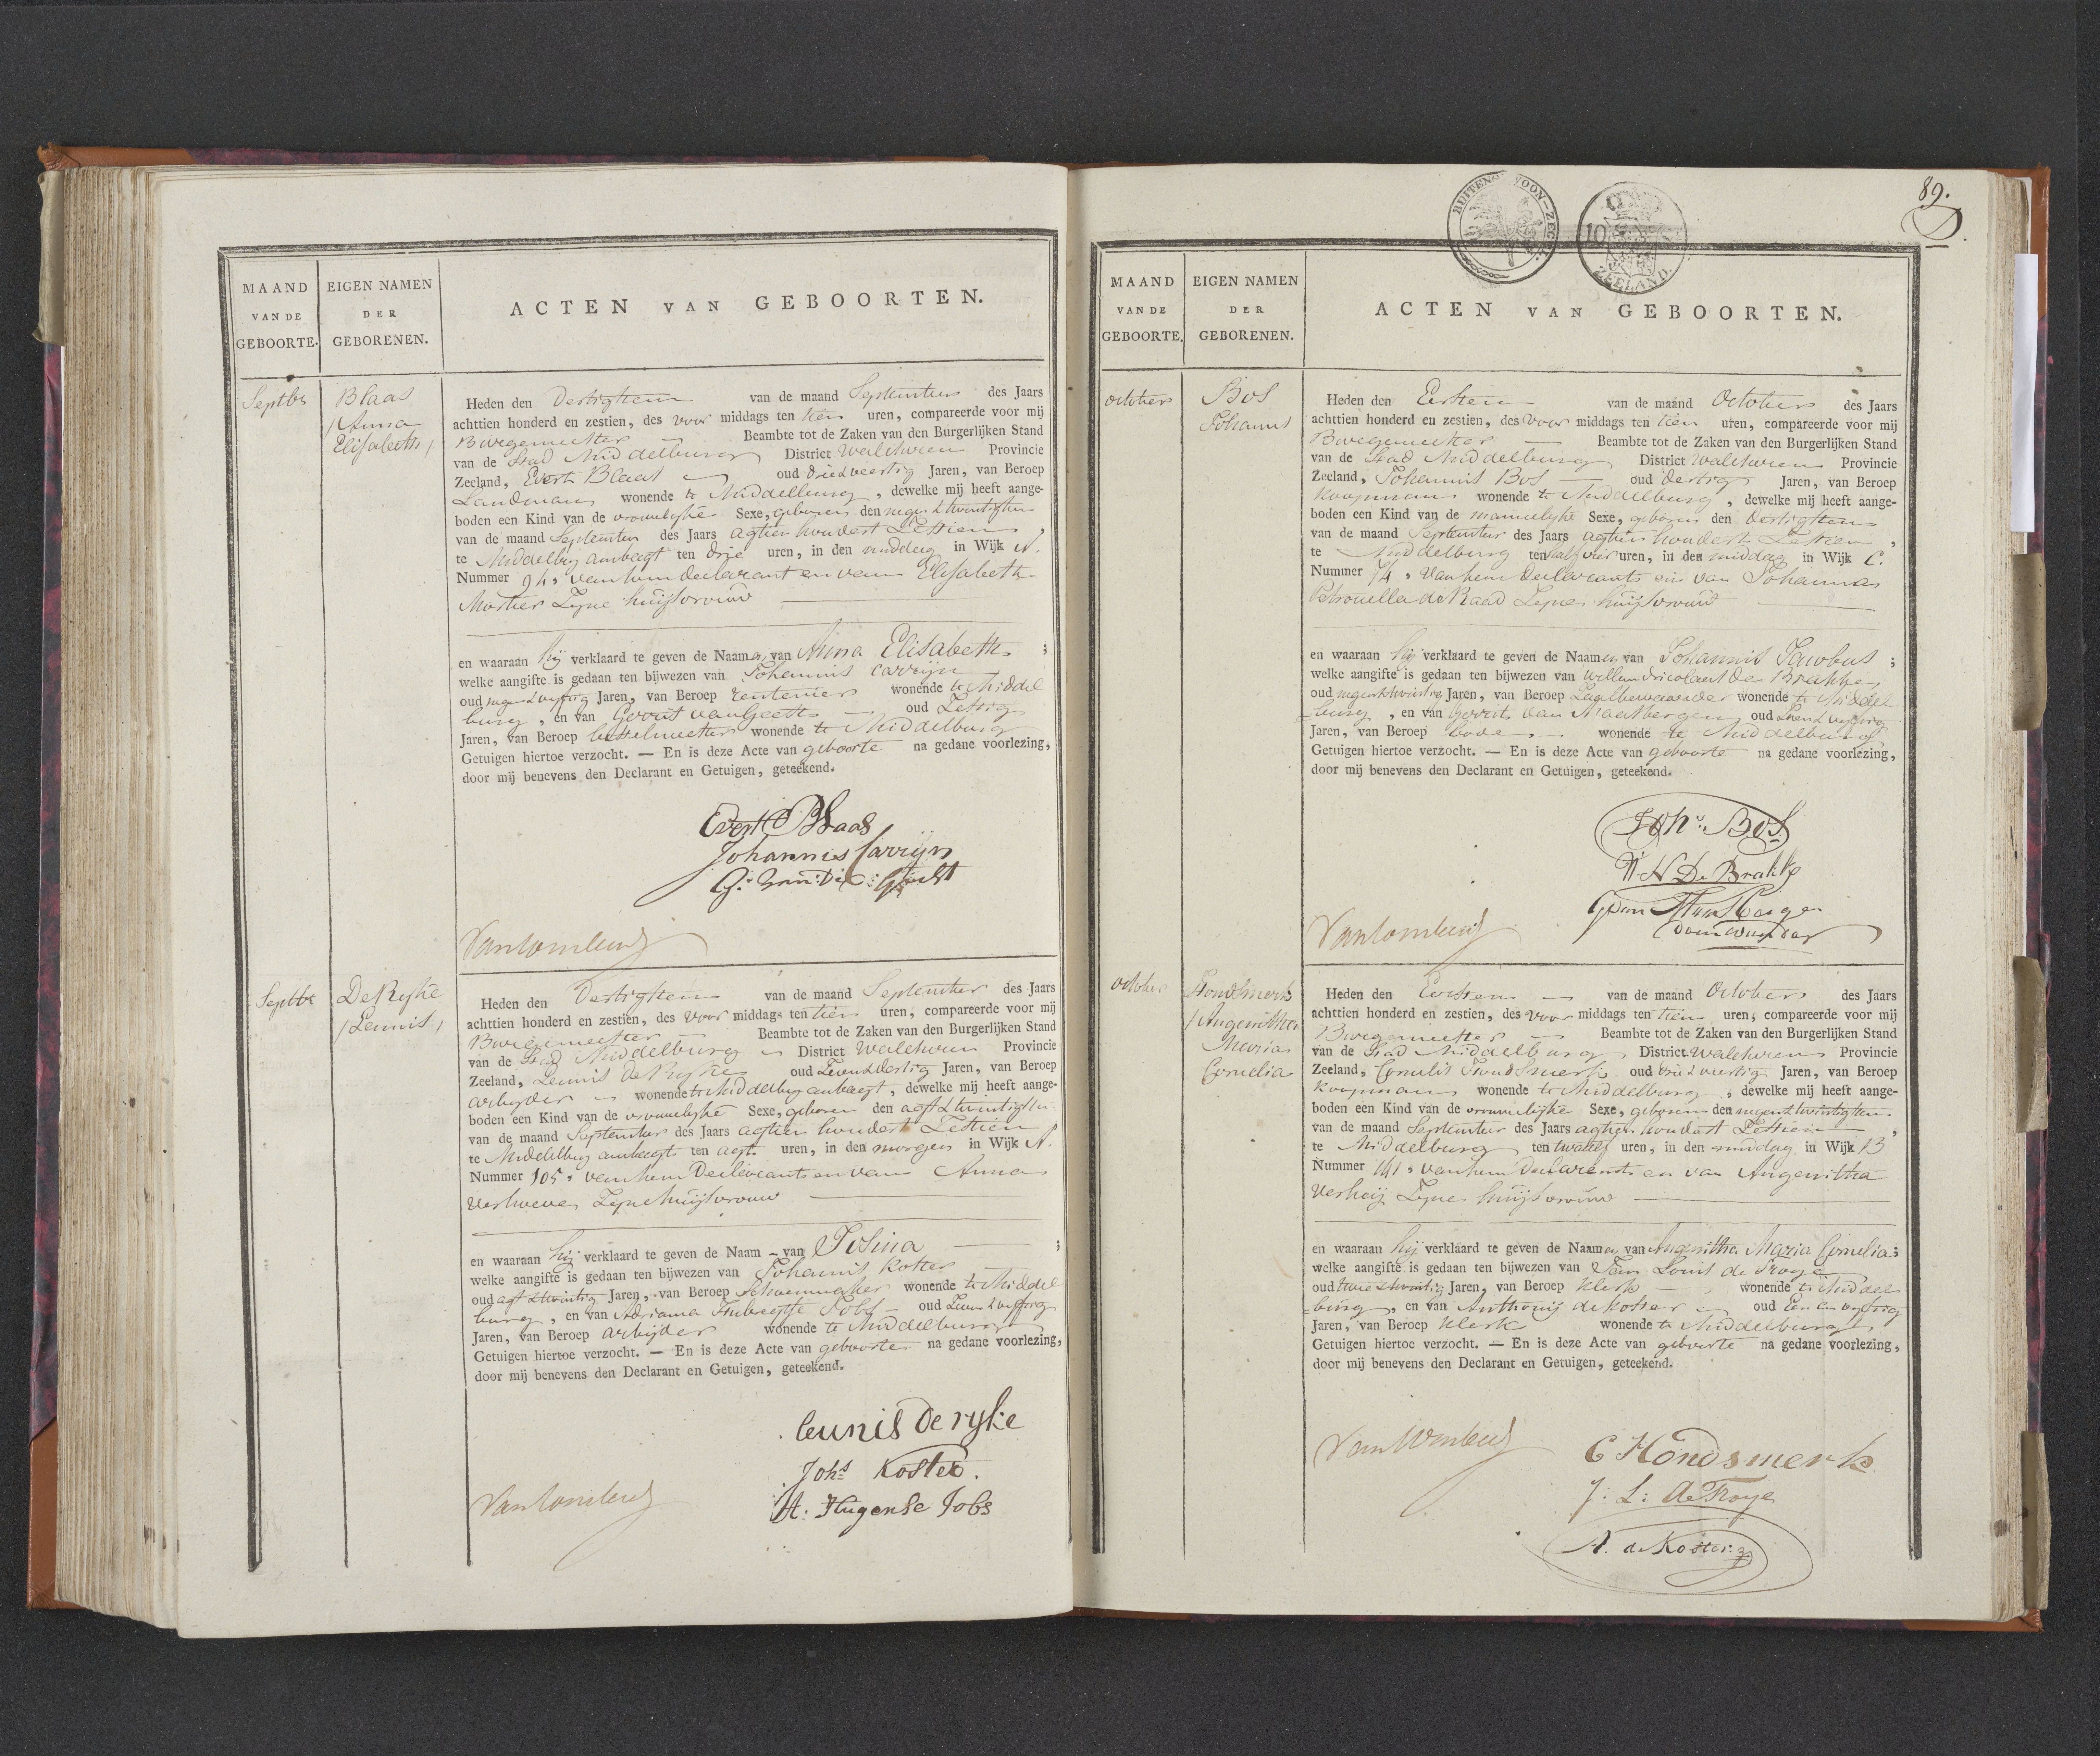 MAAND
VAN DE
GEBOORTE.
EIGEN NAMEN
DER
GEBORENEN.
ACTEN VAN GEBOORTEN.
Septbr
Blaas
/Anna
Elisabeth/
Heden den Dertigsten van de maand September des Jaars
achttien honderd en zestien, des voor middags ten tien uren, compareerde voor mij
Burgemeester Beambte tot de Zaken van den Burgerlijken Stand
van de Stad Middelburg District Walcheren Provincie
Zeeland, Evert Blaas oud drie & veertig Jaren, van Beroep
Landman wonende te Middelburg, dewelke mij heeft aange-
boden een Kind van de vrouwelyke Sexe, geboren den negen & twintigsten
van de maand September des Jaars agtien hondert Zestien,
te Middelburg ambagt ten drie uren, in den middag in Wijk A.
Nummer 94, van hem declarant en van Elisabeth
Mortier Zyne huijsvrouw
en waaraan hij verklaard te geven de Naamen van Anna Elisabeth;
welke aangifte is gedaan ten bijwezen van Johannis Carrijn
oud negen & vyftig Jaren, van Beroep rentenier wonende te Middel
burg, en van Gerrit van Geetth oud Zestig
Jaren, van Beroep wonende te Middelburg
Getuigen hiertoe verzocht. — En is deze Acte van geboorte na gedane voorlezing,
door mij benevens den Declarant en Getuigen, geteekend.
Evert Blaas
Johannis Carrijn
Septbr
De Rijke
/Leunis/
Heden den Dertigsten van de maand September des Jaars
achttien honderd en zestien, des voor middags ten tien uren, compareerde voor mij
Burgemeester Beambte tot de Zaken van den Burgerlijken Stand
van de Stad Middelburg District Walcheren Provincie
Zeeland, Leunis de Ryke oud Zeven & dertig Jaren, van Beroep
arbeyder wonende te Middelburg ambagt, dewelke mij heeft aange-
boden een Kind van de vrouwelyke Sexe, geboren den agt & twintigsten
van de maand September des Jaars agtien hondert Zestien
te Middelburg ambagt ten agt uren, in den morgen in Wijk A.
Nummer 105, van hem Declarant en van Anna
Verhoeve Zyne huijsvrouw
en waaraan hij verklaard te geven de Naam - van Josina;
welke aangifte is gedaan ten bijwezen van Johannis Koster
oud agt & twintig Jaren, van Beroep Schoenmaker wonende te Middel
burg, en van Adriaan Jobs oud Zeven & vyftig
Jaren, van Beroep arbeyder wonende te Middelburg
Getuigen hiertoe verzocht. — En is deze Acte van geboorte na gedane voorlezing,
door mij benevens den Declarant en Getuigen, geteekend.
leunis de ryke
Johs Koster.
A: Hugense Jobs
89.
BUITENGEWOON-ZEGEL
10
ZEELAND.
MAAND
VAN DE
GEBOORTE.
EIGEN NAMEN
DER
GEBORENEN.
ACTEN VAN GEBOORTEN.
October
Bos
Johannis
Heden den Eersten van de maand October des Jaars
achttien honderd en zestien, des voor middags ten tien uren, compareerde voor mij
Burgemeester Beambte tot de Zaken van den Burgerlijken Stand
van de Stad Middelburg District Walcheren Provincie
Zeeland, Johannis Bos oud dertig Jaren, van Beroep
Koopman wonende te Middelburg, dewelke mij heeft aange-
boden een Kind van de mannelyke Sexe, geboren den Dertigsten
van de maand September des Jaars agtien hondert Zestien,
te Middelburg ten half vier uren, in den middag in Wijk C.
Nummer 74, van hem Declarant en van Johanna
Petronella de Raad Zyne huijsvrouw
en waaraan hij verklaard te geven de Naamen van Johannis Jacobus;
welke aangifte is gedaan ten bijwezen van Willem Nicolaas De Brakke
oud negen & twintig Jaren, van Beroep wonende te Middel
burg, en van Gerrit van Maasbergen oud Zeven & vyftig
Jaren, van Beroep bode wonende te Middelburg
Getuigen hiertoe verzocht. — En is deze Acte van geboorte na gedane voorlezing,
door mij benevens den Declarant en Getuigen, geteekend.
Johs. Bos
W N De Brakke
October
Hondsmerk
/Angenitha
Maria
Cornelia
Heden den Eersten van de maand October des Jaars
achttien honderd en zestien, des voor middags ten tien uren, compareerde voor mij
Burgemeester Beambte tot de Zaken van den Burgerlijken Stand
van de Stad Middelburg District Walcheren Provincie
Zeeland, Cornelis Hondsmerk oud drie & veertig Jaren, van Beroep
Koopman wonende te Middelburg, dewelke mij heeft aange-
boden een Kind van de vrouwelijke Sexe, geboren den negen & twintigsten
van de maand September des Jaars agtien hondert Zestien,
te Middelburg ten twaalf uren, in den middag in Wijk B
Nummer 141, van hem Declarant en van Angenitha
Verheij Zyne huijsvrouw
en waaraan hij verklaard te geven de Naamen van Angenitha Maria Cornelia;
welke aangifte is gedaan ten bijwezen van Jean Louis de Troye
oud twee & twintig Jaren, van Beroep Klerk wonende te Middel
burg, en van Anthonij de Koster oud Een en vyftig
Jaren, van Beroep Klerk wonende te Middelburg
Getuigen hiertoe verzocht. — En is deze Acte van geboorte na gedane voorlezing,
door mij benevens den Declarant en Getuigen, geteekend.
C Hondsmerk
J: L: de Troye
A. de Koster